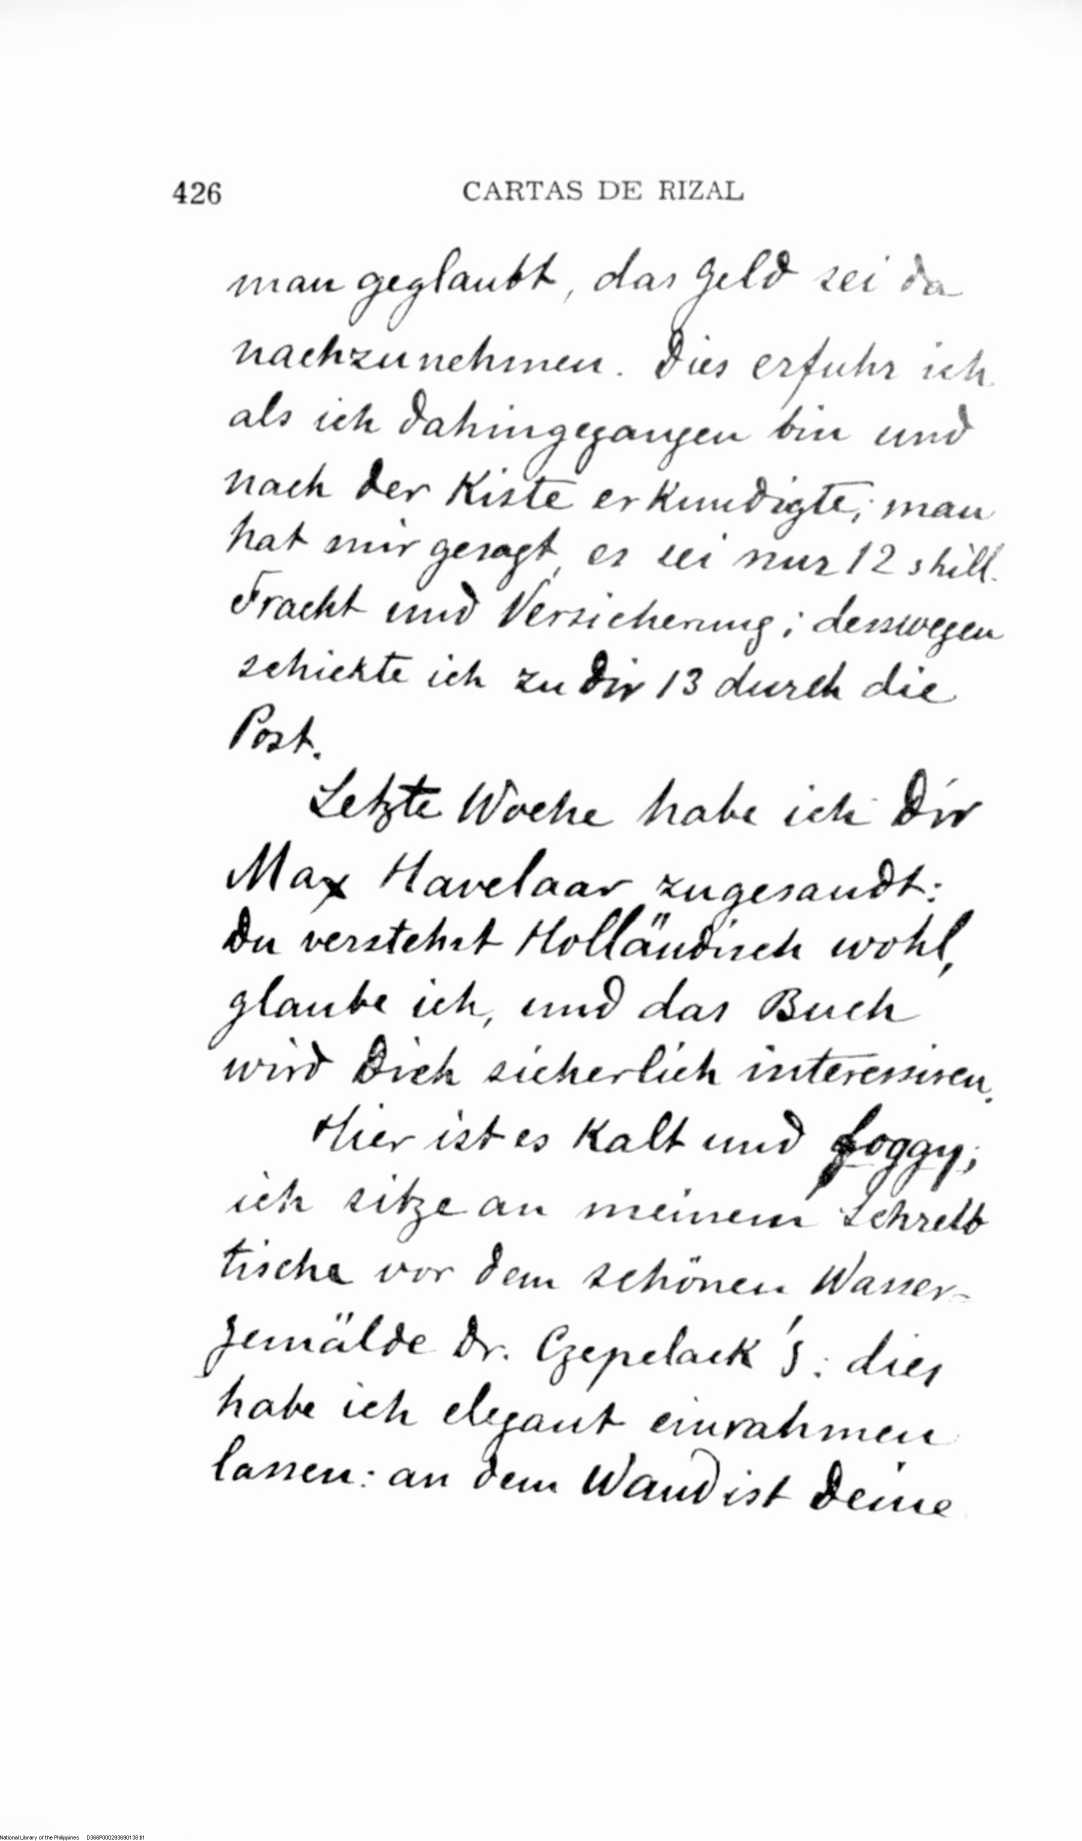 426 CARTAS DE RIZAL
man geglaubt, das Geld sei da
nachzunehmen. Dies erfuhr ich
als ich dahingegangen bin und
nach der Kiste erkundigte; man
hat mir gesagt, es sei nur 12 shill.
Fracht und Versicherung; desswegen
schickte ich zu Dir 13 durch die
Post.
Letzte Woche habe ich Dir
Max Havelaar zugesandt:
Du verstehst Holländisch wohl,
glaube ich, und das Buch
wird Dich sicherlich interessiren.
Hier ist es kalt und foggy;
ich sitze an meinem Schreib
tische vor dem schönen Wasser-
gemälde Dr. Czepelack's: dies
habe ich elegant einrahmen
lassen: an dem Wand ist Deine
National Library of the Philippines